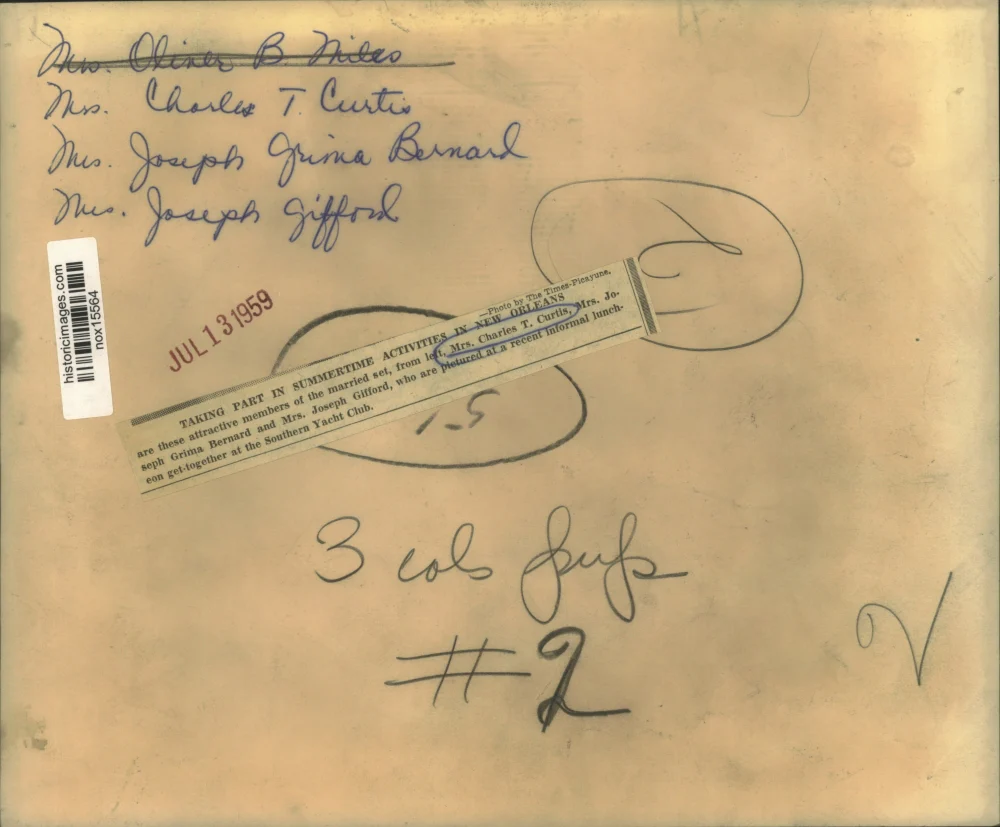 Mrs. Oliver B. Miles
Mrs. Charles T. Curtis
Mrs. Joseph Grima Bernard
Mrs. Joseph Gifford
historicimages.com
nox15564
JUL 13 1959
—Photo by The Times-Picayune.
TAKING PART IN SUMMERTIME ACTIVITIES IN NEW ORLEANS
are these attractive members of the married set, from left, Mrs. Charles T. Curtis, Mrs. Jo-
seph Grima Bernard and Mrs. Joseph Gifford, who are pictured at a recent informal lunch-
eon get-together at the Southern Yacht Club.
3 cols
#2